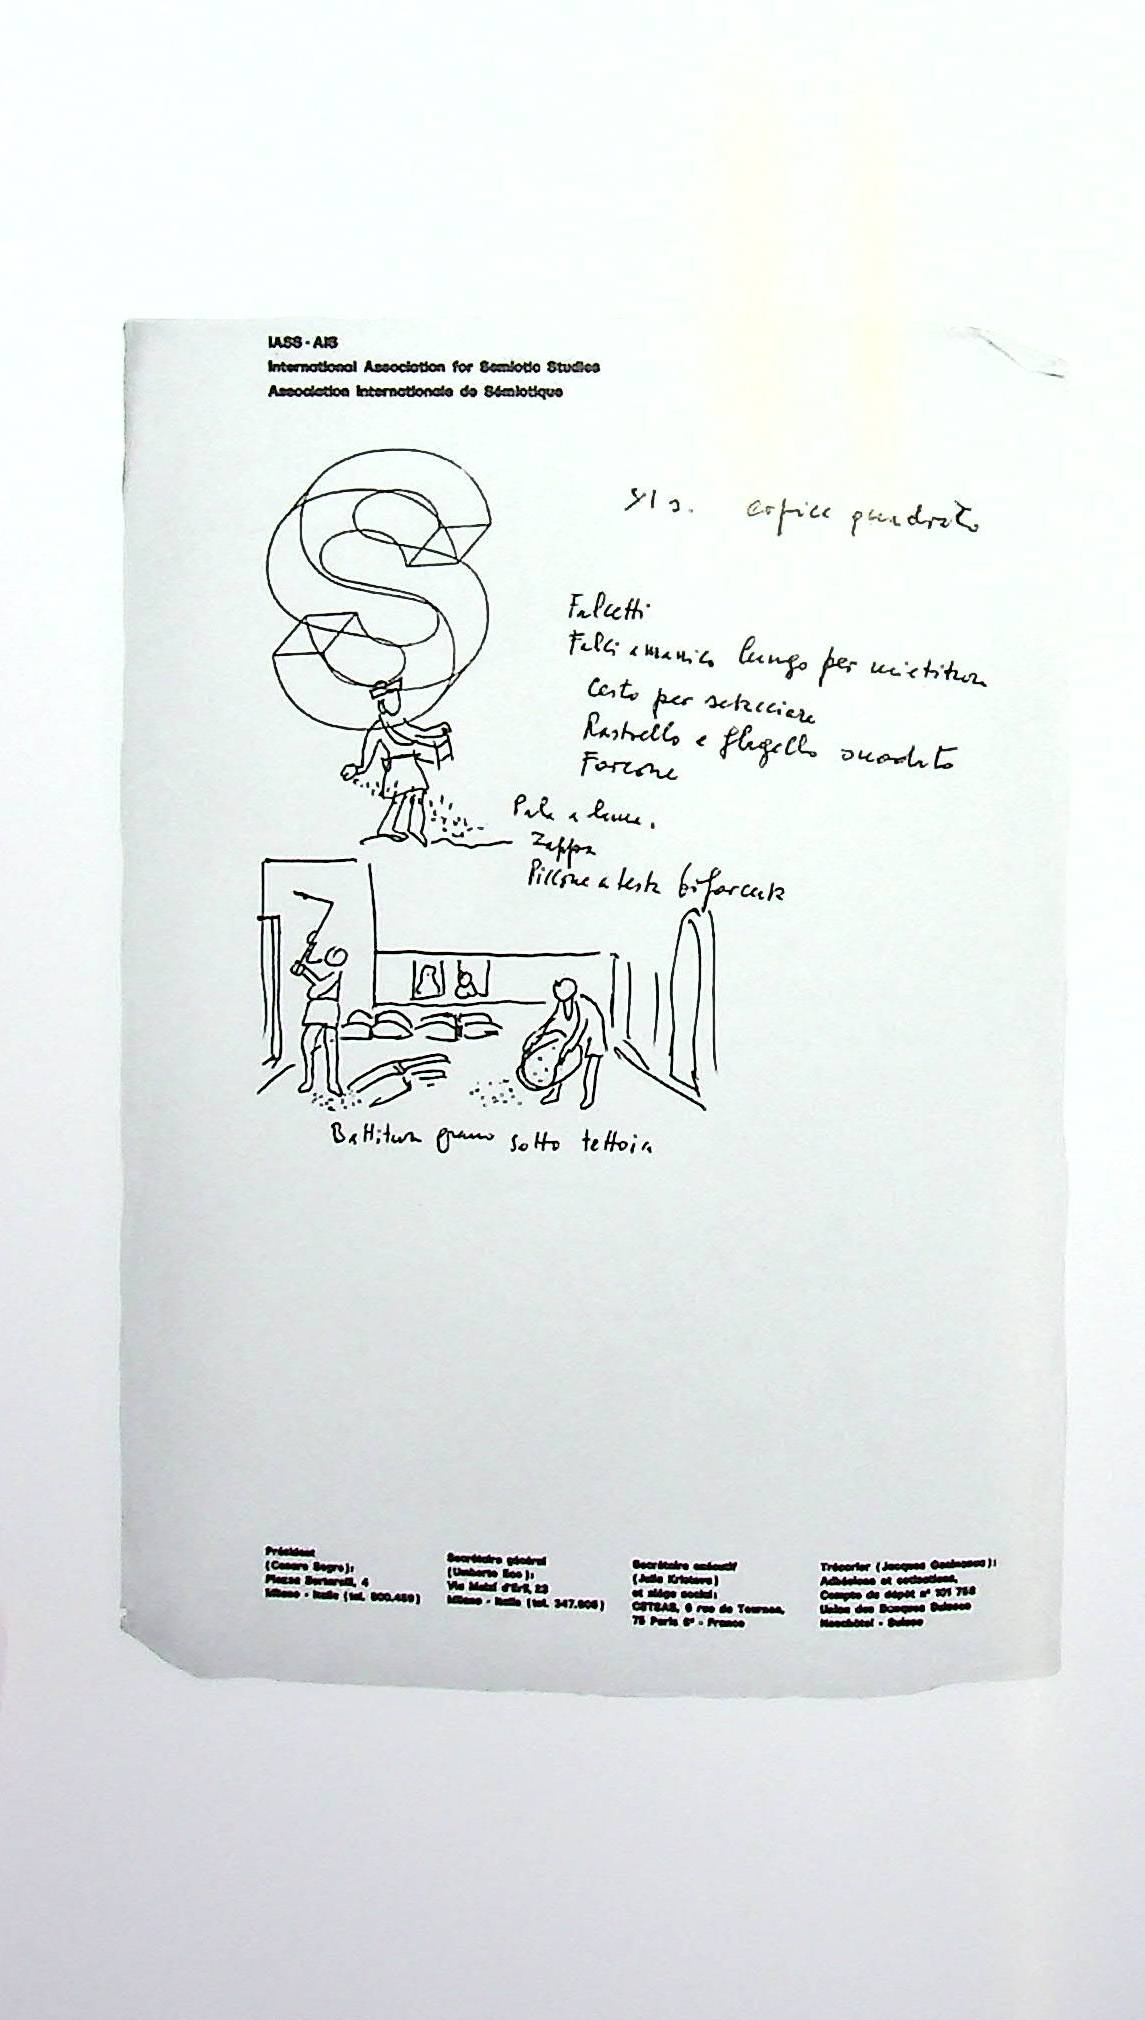 IASS - AIS
International Association for Semiotic Studies
Association Internationale de Sémiotique
quadrato
Falcetti
Falci a manico lungo per mietitura
Cesto per setacciare
Rastrello e flagello snodato
Forcone
Pala a lama.
Zappa
Piccone a testa biforcuta
Battitura grano sotto tettoia
Président
(Cesare Segre):
Piazza Bertarelli, 4
Milano - Italie (tel. 800.459)
Secrétaire général
(Umberto Eco):
Via Melzi d'Eril, 23
Milano - Italie (tel. 347.606)
Secrétaire exécutif
(Julia Kristeva)
et siège social:
CETSAS, 6 rue de Tournon,
75 Paris 6e - France
Trésorier (Jacques Geninasca):
Adhésions et cotisations,
Compte de dépôt n° 101 758
Union des Banques Suisses
Neuchâtel - Suisse